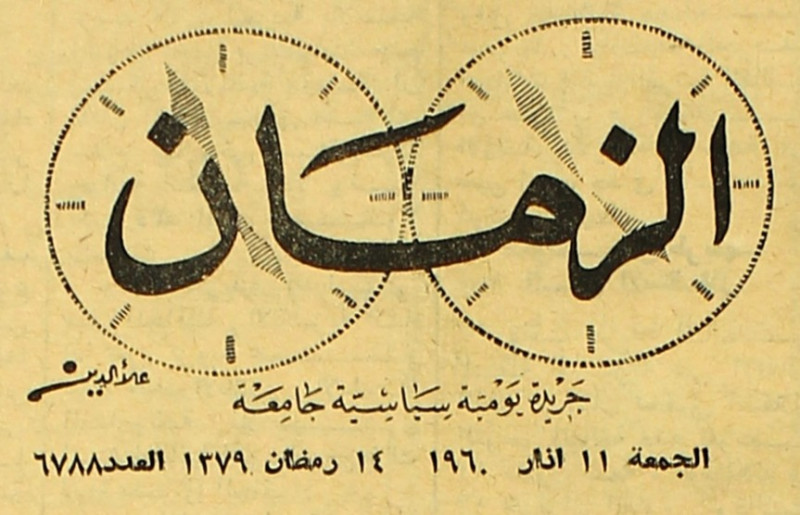 الزمان
علاء الدين
جَريدة يَوميّة سيَاسيّة جَامِعَة
الجمعة ١١ اذار ١٩٦٠ ١٤ رمضان ١٣٧٩ العدد ٦٧٨٨